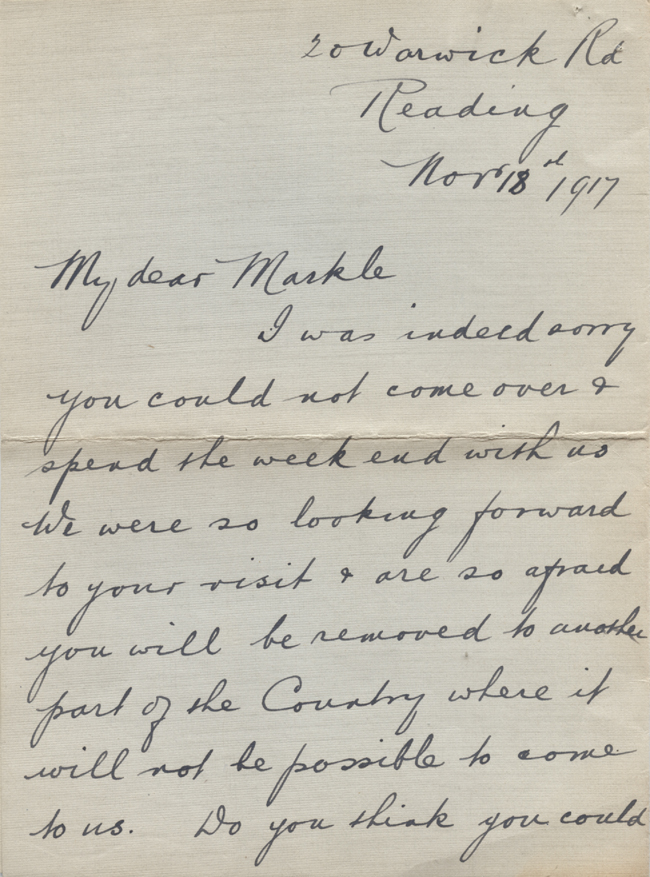 20 Warwick Rd
Reading
Nov 18th 1917
My dear Markle
I was indeed sorry
you could not come over &
spend the week end with us
We were so looking forward
to your visit & are so afraid
you will be removed to another
part of the Country where it
will not be possible to come
to us. Do you think you could